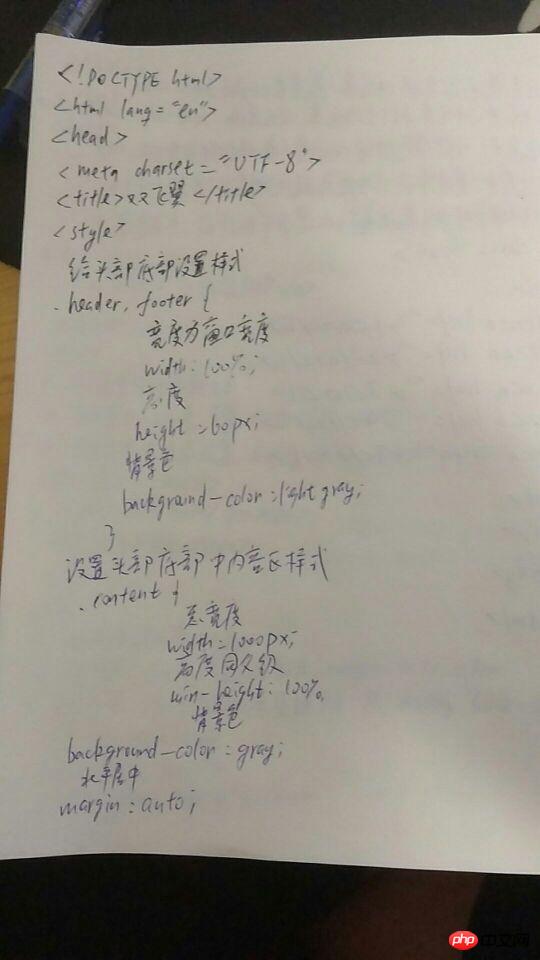 <!DOCTYPE html>
<html lang="en">
<head>
<meta charset="UTF-8">
<title>双飞翼</title>
<style>
给头部底部设置样式
.header, .footer {
宽度为窗口宽度
width: 100%;
高度
height: 60px;
背景色
background-color: lightgray;
}
设置头部底部中内容区样式
.content {
总宽度
width: 1000px;
高度同父级
min-height: 100%,
背景色
background-color: gray;
水平居中
margin: auto;
php 中文网